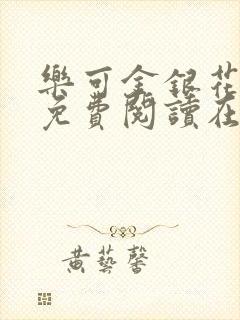 樂可金銀花
免費閱讀在
黃藝馨